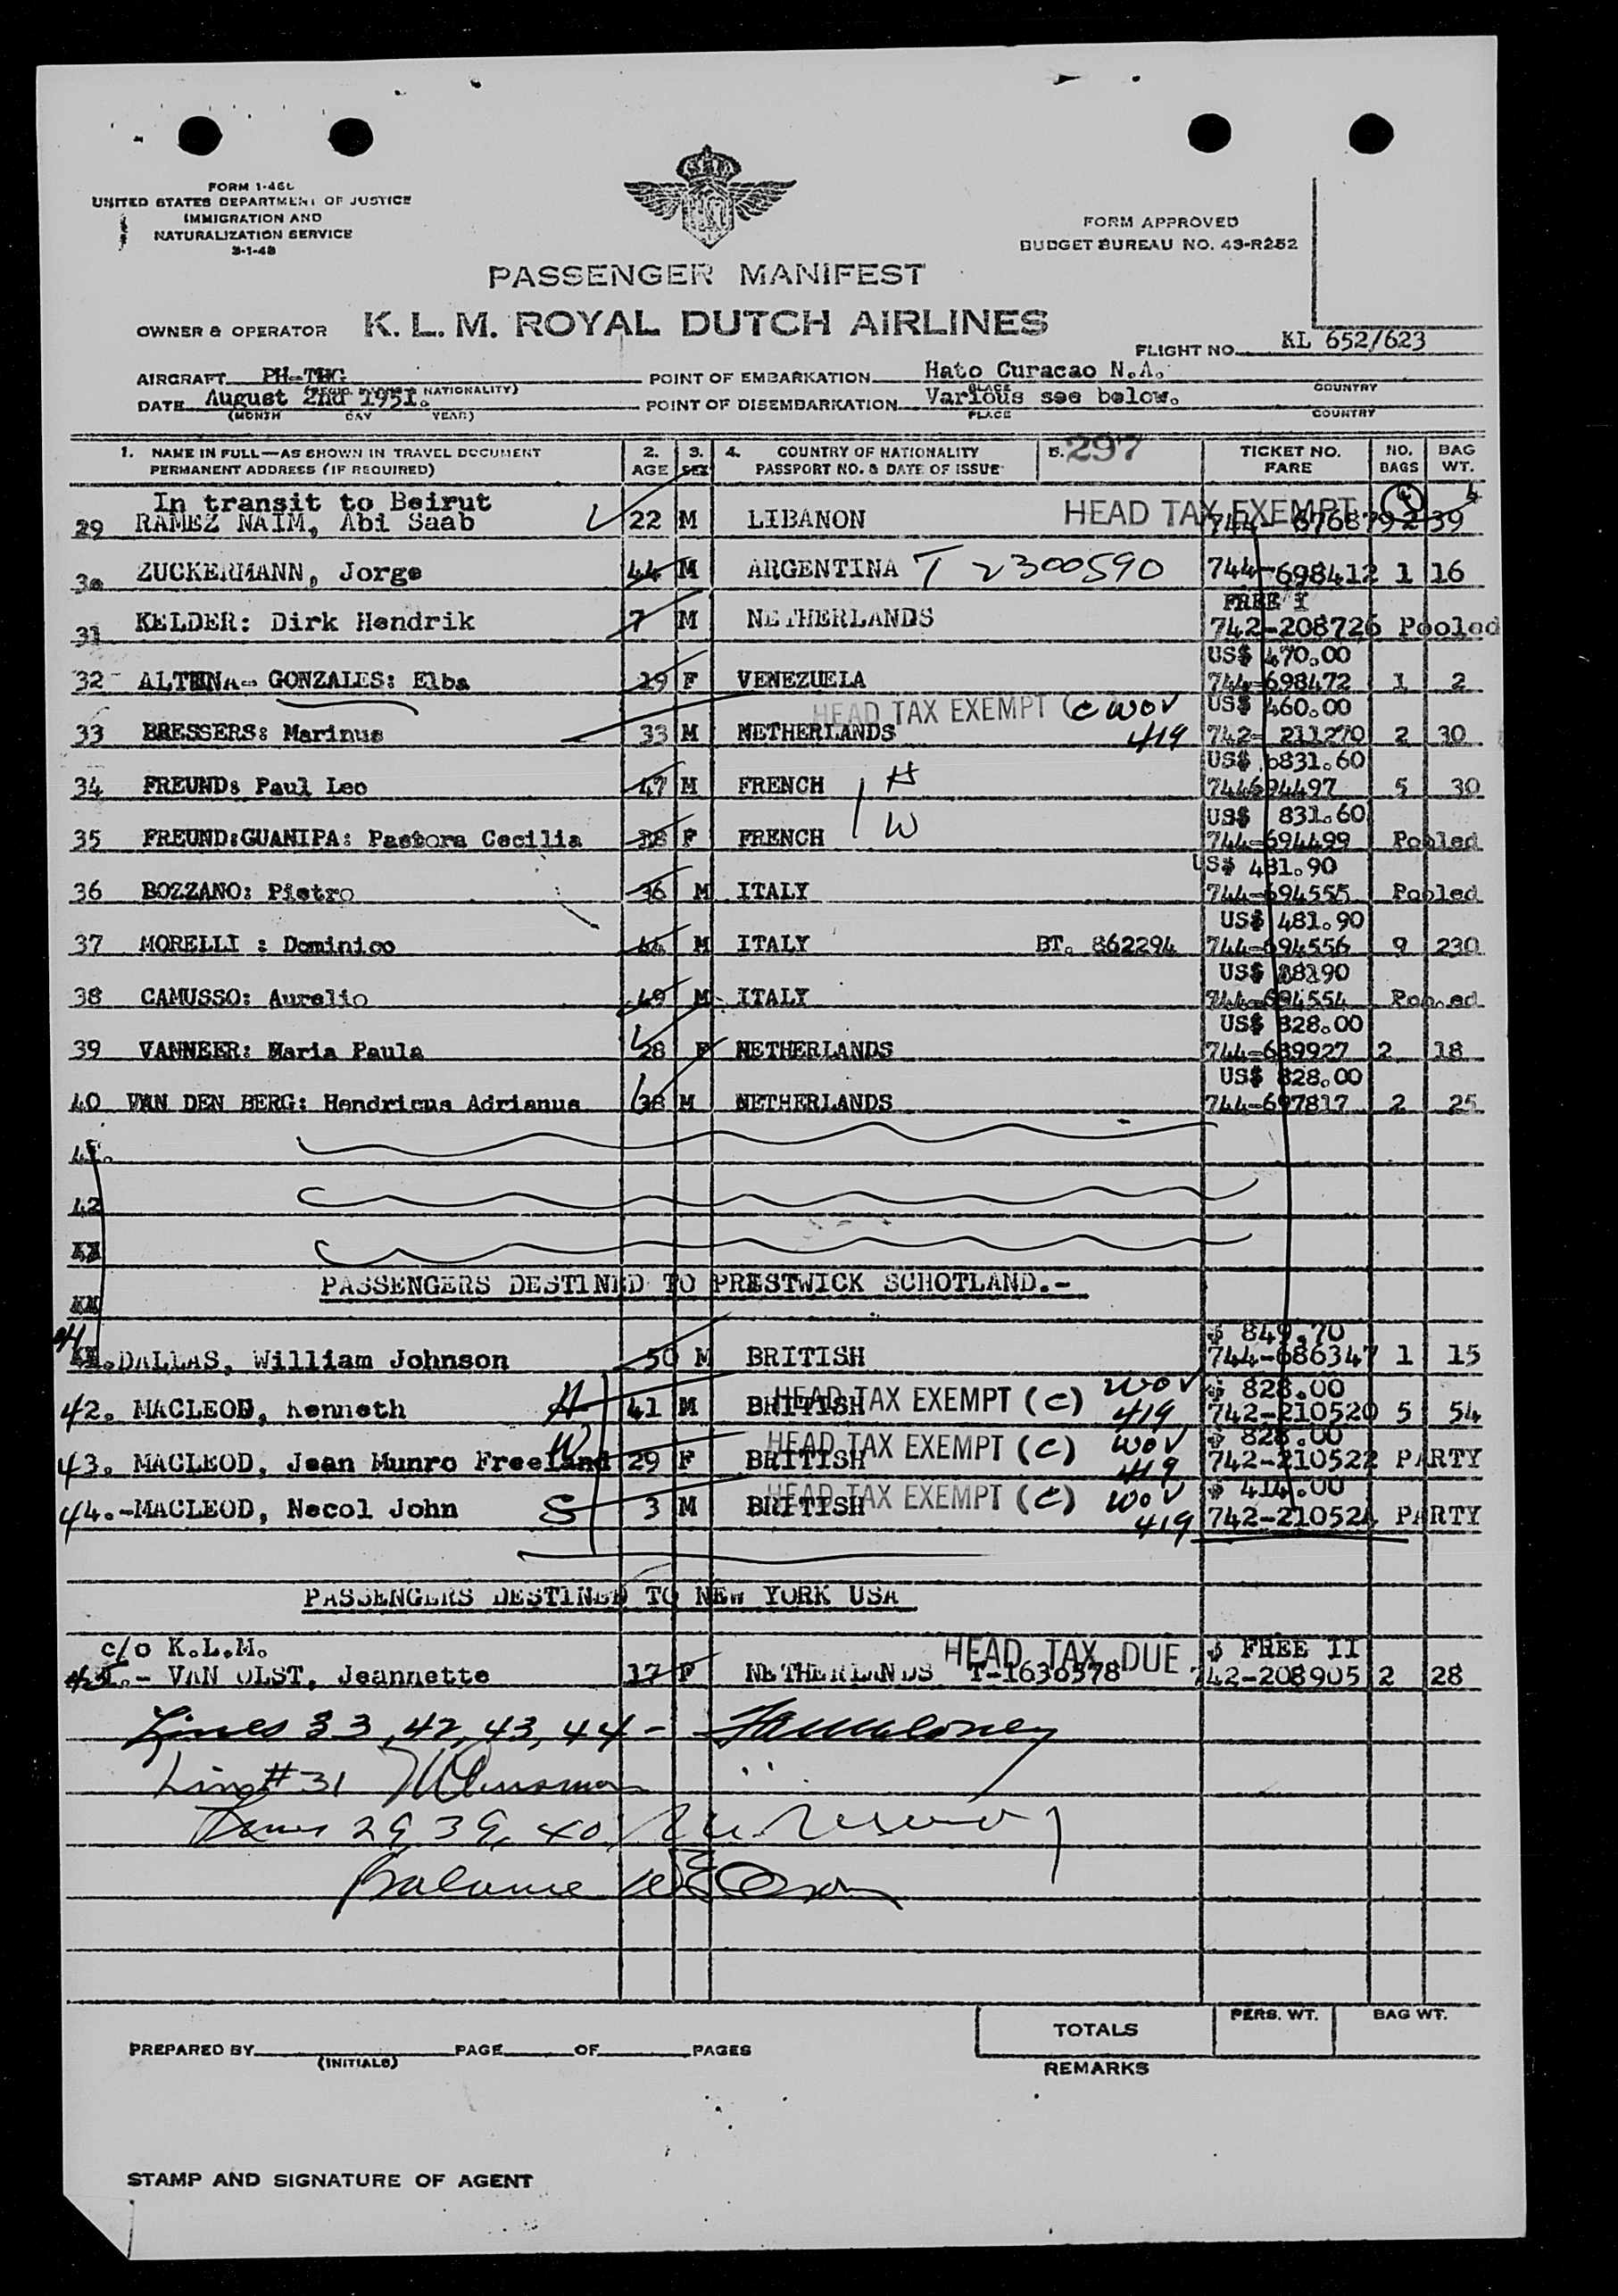 FORM I-466
UNITED STATES DEPARTMENT OF JUSTICE
IMMIGRATION AND
NATURALIZATION SERVICE
3-1-48
FORM APPROVED
BUDGET BUREAU NO. 43-R252
PASSENGER MANIFEST
OWNER & OPERATOR K. L. M. ROYAL DUTCH AIRLINES
FLIGHT NO. KL 652/623
AIRCRAFT PH-TEG POINT OF EMBARKATION Hato Curacao N.A.
NATIONALITY) PLACE COUNTRY
DATE August 2nd 1951. POINT OF DISEMBARKATION Various see below.
(MONTH DAY YEAR) PLACE COUNTRY
1. NAME IN FULL—AS SHOWN IN TRAVEL DOCUMENT 2. 3. 4. COUNTRY OF NATIONALITY 5. 297 TICKET NO. NO. BAG
PERMANENT ADDRESS (IF REQUIRED) AGE SEX PASSPORT NO. & DATE OF ISSUE FARE BAGS WT.
In transit to Beirut HEAD TAX EXEMPT 4 4
29 RAMEZ NAIM, Abi Saab 22 M LIBANON 744- 676879 2 39
30 ZUCKERMANN, Jorge 44 M ARGENTINA T 2300590 744-698412 1 16
FREE I
31 KELDER: Dirk Hendrik 7 M NETHERLANDS 742-208726 Pooled
US$ 470.00
32 ALTENA- GONZALES: Elba 29 F VENEZUELA 744-698472 1 2
HEAD TAX EXEMPT (c wov US$ 460.00
33 BRESSERS: Marinus 33 M NETHERLANDS 419 742- 211270 2 30
US$ 831.60
34 FREUND: Paul Leo 47 M FRENCH H 744694497 5 30
US$ 831.60
35 FREUND:GUANIPA: Pastora Cecilia 38 F FRENCH W 744-694499 Pooled
US$ 481.90
36 BOZZANO: Pietro 36 M ITALY 744-694555 Pooled
US$ 481.90
37 MORELLI : Dominico 44 M ITALY BT. 862294 744-694556 9 230
US$
38 CAMUSSO: Aurelio 49 M ITALY 744-694554 Pooled
US$ 828.00
39 VANNEER: Maria Paula 28 F NETHERLANDS 744-689927 2 18
US$ 828.00
40 VAN DEN BERG: Hendricus Adrianus 38 M NETHERLANDS 744-697817 2 25
41.
42
PASSENGERS DESTINED TO PRESTWICK SCHOTLAND.-
$ 849.70
41 DALLAS, William Johnson 50 M BRITISH 744-686347 1 15
HEAD TAX EXEMPT (c) wov $ 828.00
42. MACLEOD, Kenneth H 41 M BRITISH 419 742-210520 5 54
HEAD TAX EXEMPT (c) wov $ 828.00
43. MACLEOD, Jean Munro Freeland W 29 F BRITISH 419 742-210522 PARTY
HEAD TAX EXEMPT (c) wov $ 414.00
44.-MACLEOD, Necol John S 3 M BRITISH 419 742-210524 PARTY
PASSENGERS DESTINED TO NEW YORK USA
c/o K.L.M. HEAD TAX DUE $ FREE II
45.- VAN OLST, Jeannette 17 F NETHERLANDS T-1630578 742-208905 2 28
Lines 33, 42, 43, 44 -
Line #31
Lines 29, 39, 40
Balance
TOTALS PERS. WT. BAG WT.
PREPARED BY PAGE OF PAGES
(INITIALS)
REMARKS
STAMP AND SIGNATURE OF AGENT